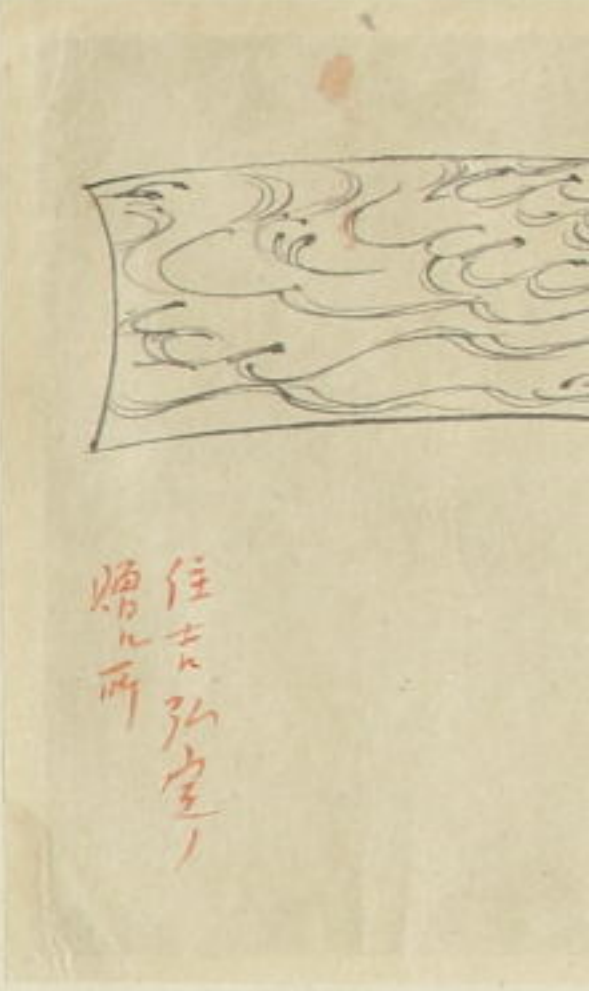 住吉弘定ノ
贈ル所